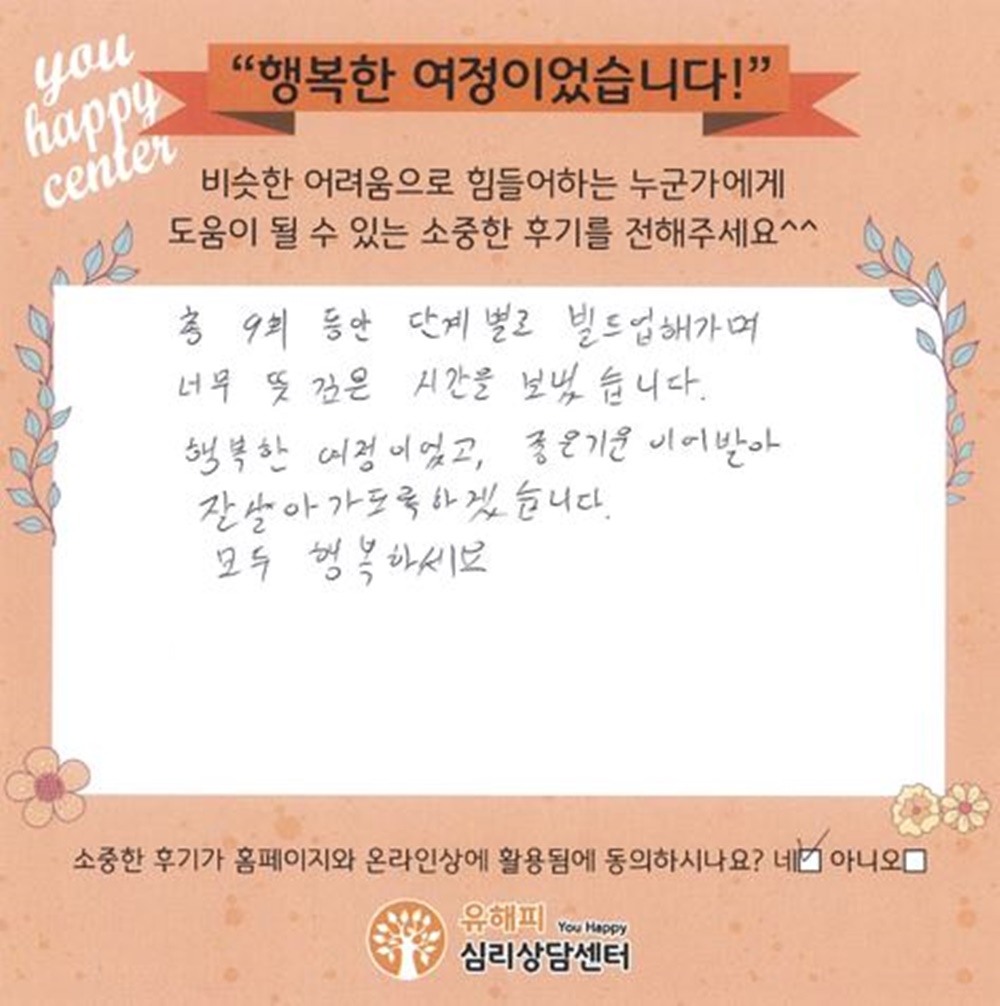 you
happy
center
“행복한 여정이었습니다!”
비슷한 어려움으로 힘들어하는 누군가에게
도움이 될 수 있는 소중한 후기를 전해주세요^^
총 9회 동안 단계별로 빌드업해가며
너무 뜻 깊은 시간을 보냈습니다.
행복한 여정이었고, 좋은기운 이어받아
잘살아가도록하겠습니다.
모두 행복하세요
소중한 후기가 홈페이지와 온라인상에 활용됨에 동의하시나요? 네☑ 아니오☐
유해피 You Happy
심리상담센터